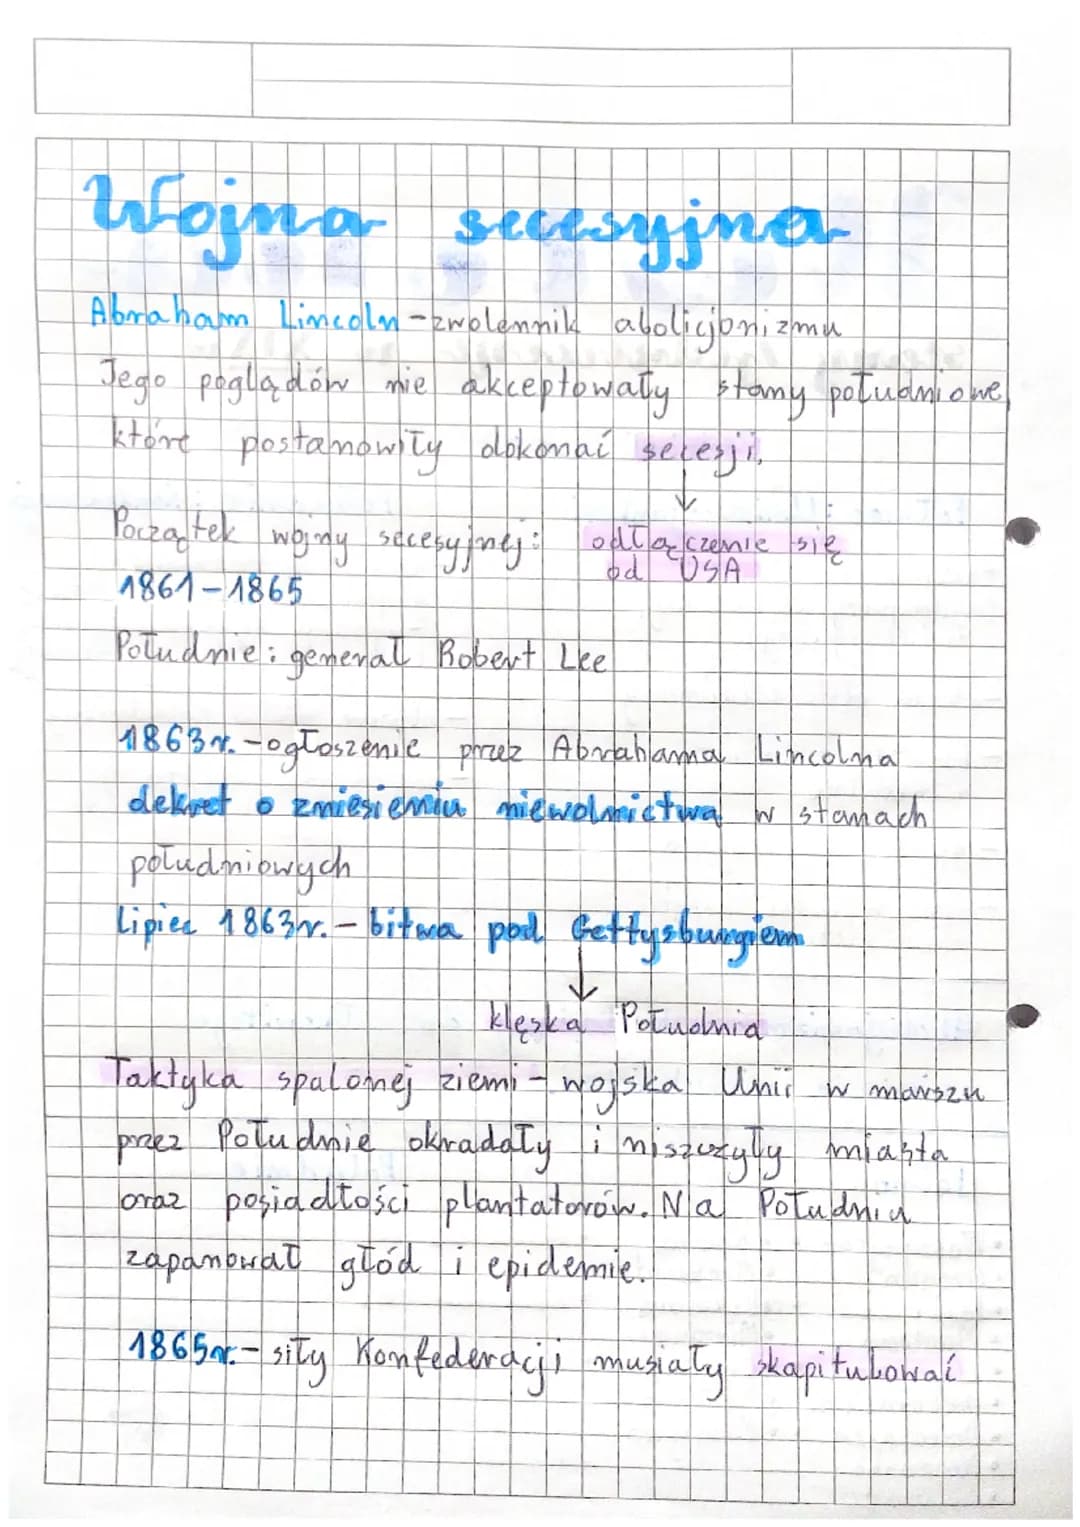 Wojna secesyjna
Abraham Lincoln - zwolennik abolicjonizmu
Jego poglądów nie akceptowały stany południowe,
które postanowiły dokonać secesji.
↓
Początek wojny secesyjnej: odłączenie się
od USA
1861-1865
Południe: generał Robert Lee
1863r. - ogłoszenie przez Abrahama Lincolna
dekret o zniesieniu niewolnictwa w stanach
południowych
Lipiec 1863r. - bitwa pod Gettysburgiem
↓
klęska Południa
Taktyka spalonej ziemi - wojska Unii w marszu
przez Południe okradały i niszczyły miasta
oraz posiadłości plantatorów. Na Południu
zapanował głód i epidemie.
1865r. - siły Konfederacji musiały skapitulować